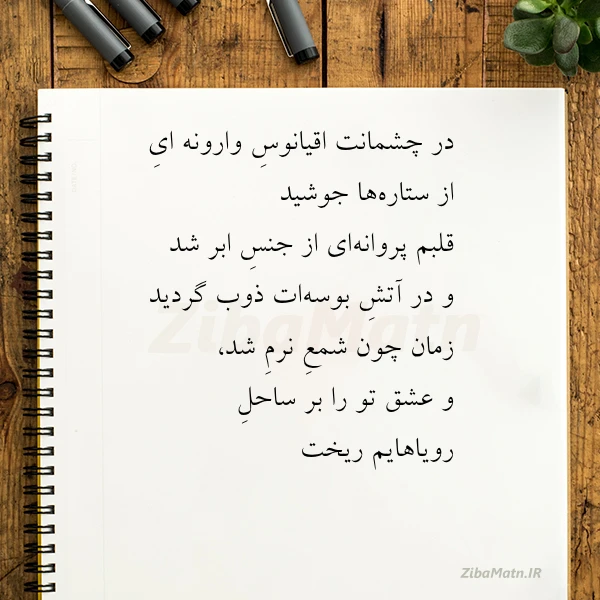 در چشمانت اقیانوسِ وارونه ایِ
از ستاره‌ها جوشید
قلبم پروانه‌ای از جنسِ ابر شد
و در آتشِ بوسه‌ات ذوب گردید
زمان چون شمعِ نرمِ شد،
و عشق تو را بر ساحلِ
رویاهایم ریخت
ZibaMatn
ZibaMatn.IR